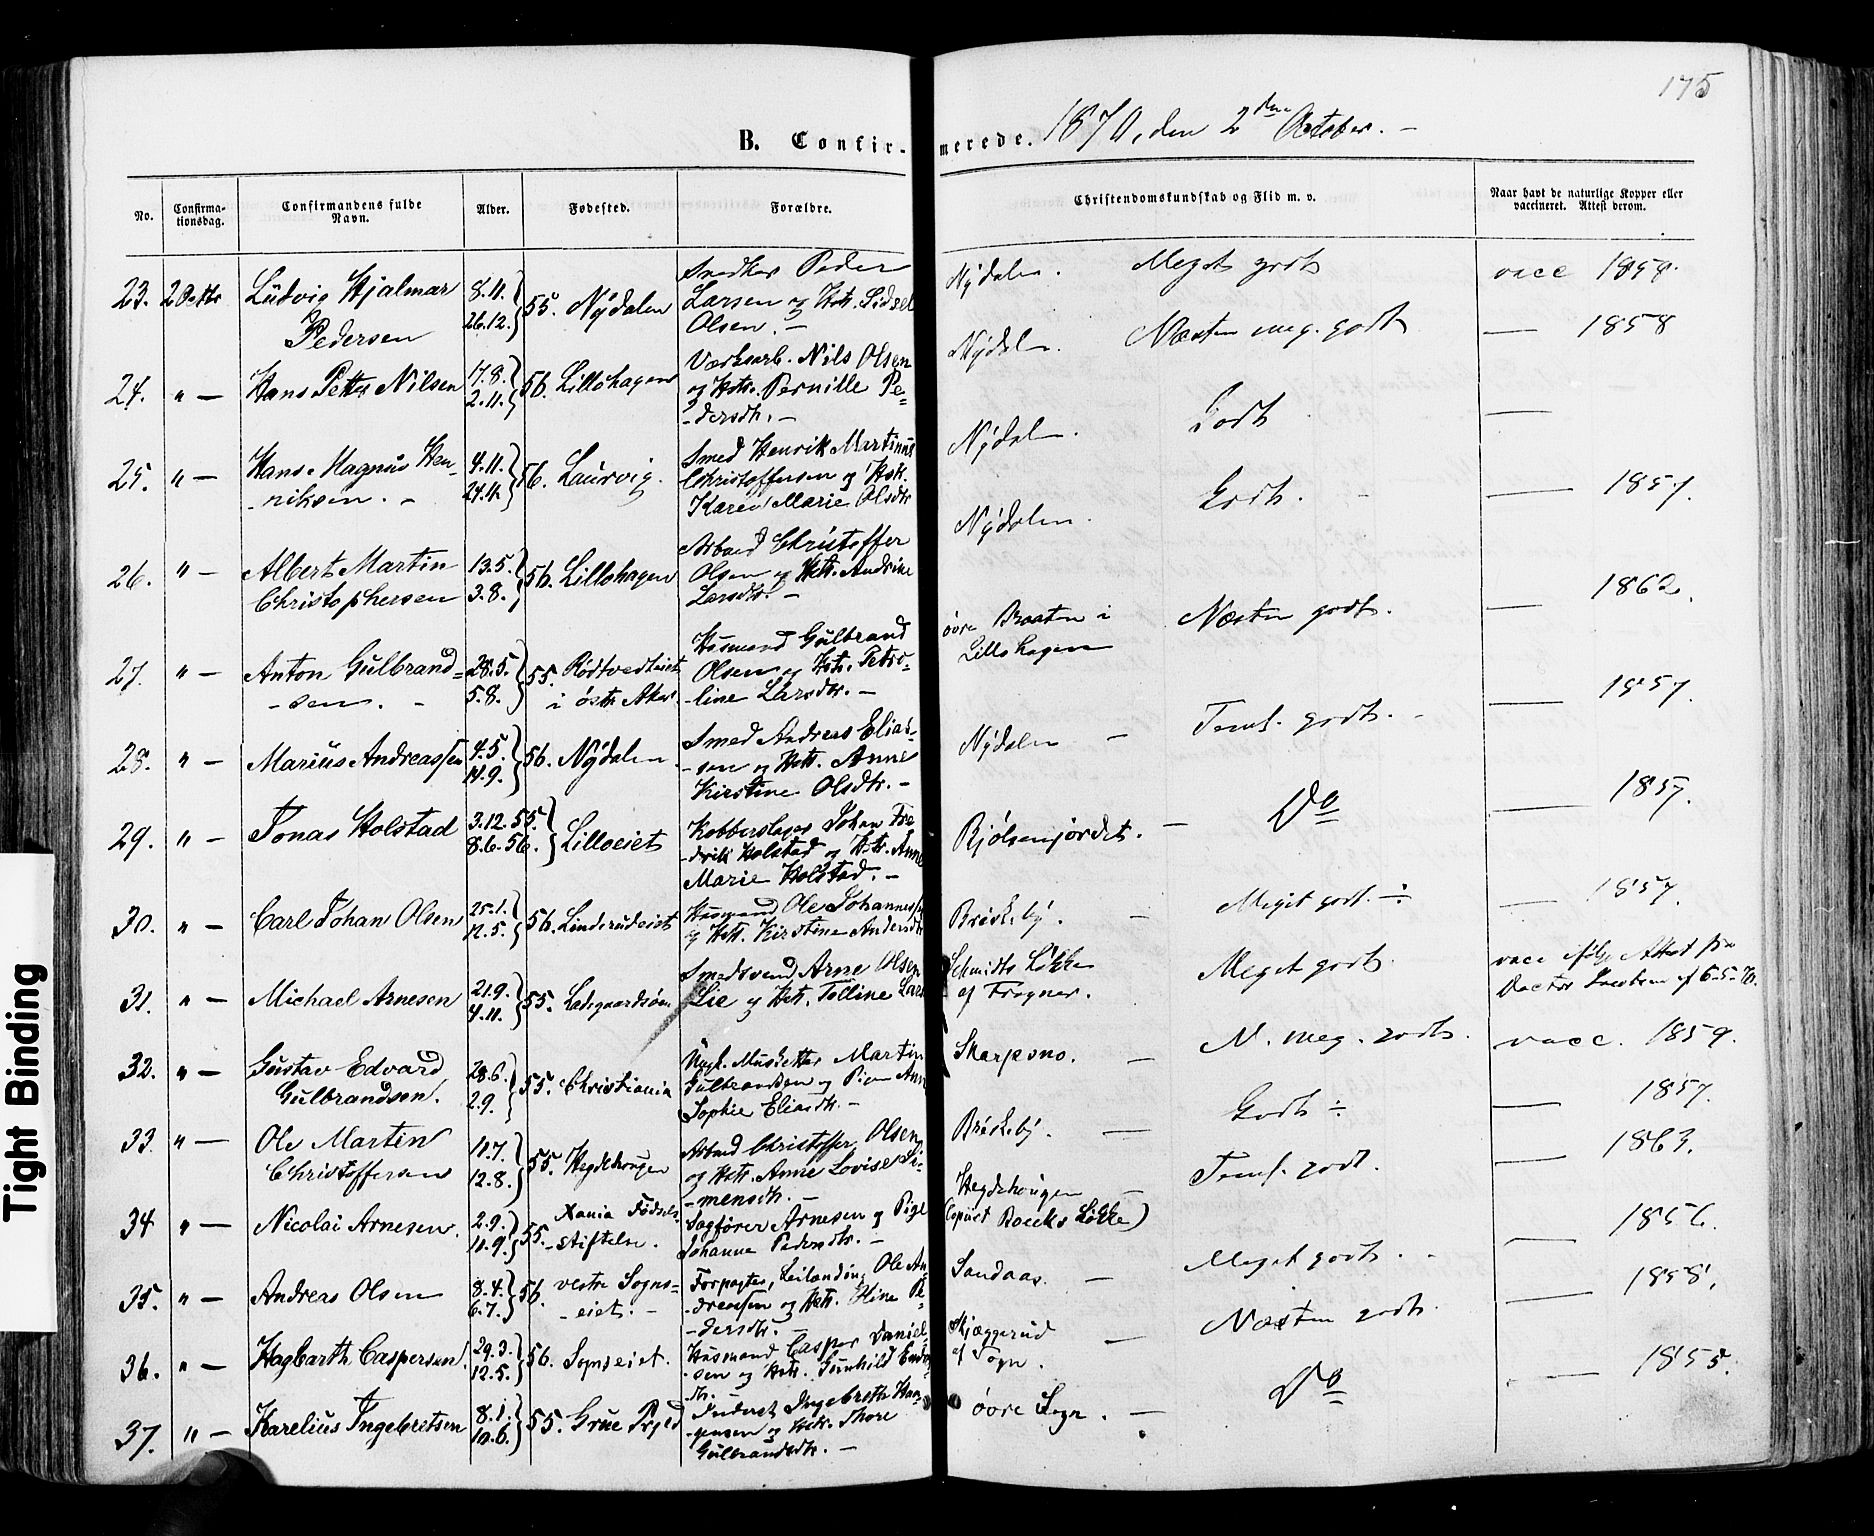 175
B. Confirmerede. 1870, den 2den October. —
No. Confirmationsdag. Confirmandens fulde Navn. Alder. Fødested. Forældre. Christendomskundskab og Flid m. v. Naar havt de naturlige Kopper eller vaccineret. Attest derom.
23. 2 Octbr Ludvig Hjalmar 8.11. 55. Nydalen Snedker Peder Nydalen. Meget godt vacc 1858.
Pedersen 26.12. Larsen og Hstr. Lidsel
Olsen. —
24. " — Hans Petter Nilsen 17.8. 56. Lillohagen Værksarb. Nils Olsen Nydalen. Næsten meg. godt — 1858
2.11. og Hstr. Pernille Pe-
-dersdtr. —
25. " — Hans Magnus Hen- 4.11. 56. Laurvig. Smed Henrik Martinus Nydalen. Godt —
-riksen. — 24.11. Christoffersen og Hstr.
Karen Marie Olsdtr
26. " — Albert Martin 13.5. 56. Lillohagen Arbmd Christoffer Nydalen. Godt. — 1857.
Christophersen 3.8. Olsen og Hstr. Andrine
Larsdtr. —
27. " — Anton Gulbrand= 28.5. 55. Rødtvedteiet Husmand Gulbrand øvre Braaten i Næsten godt. — 1862.
-sen. — 5.8. i østr Aker. Olsen og Hstr. Petro- Lillohagen
-line Larsdtr. —
28. " — Marius Andreassen 4.5. 56. Nydalen. Smed Andreas Elias- Nydalen — Teml. godt. — 1857
11.9. -sen og Hstr. Anne
Kirstine Olsdtr. —
29. " — Jonas Holstad 3.12. 55. Lilloeiet Kobberslager Johan Fre Bjølsenjordet. — Do — 1857.
8.6. 56. -drik Holstad og Hstr. Anne
Marie Holstad. —
30. " — Carl Johan Olsen 25.1. 56. Linderudeiet Husmand Ole Johannessen Briskeby. — Meget godt. ÷ — 1857.
12.5. og Hstr. Kirstine Andersdtr
31. " — Michael Arnesen 21.9. 55. Ladegaardsøen Smedsvend Arne Olsen Schmidts Løkke Meget godt. vacc ifølge Attest fra
4.11. Lie og Hstr. Tolline Lars af Frogner. Doctor Jacobsen af 6-5-70.
32. " — Gustav Edvard 28.6. 55. Christiania Ugk. Musketter Martin Skarpsno. — N. meg. godt. vacc. 1859.
Gulbrandsen. 2.9. Gulbrandsen og Pige Anne
Sophie Eliasdtr. —
33. " — Ole Martin 11.7. 55. Hegdehougen Arbmd Christoffer Olsen Briskeby. — Godt ÷ — 1857.
Christoffersen 12.8. og Hstr. Anne Lovise Si-
-mensdtr. —
34 " — Nicolai Arnesen. 2.9. 55. Xania Fødsels- Sagfører Arnesen og Pige Hegdehougen — Teml. godt. — 1863.
11.9. -stiftelse. Johanne Pedersdtr. — Boecks Løkke)
35. " — Andreas Olsen 8.4. 56. vestre Sogns- Forpagter, Leilænding Ole An- Sandaas. — Meget godt. — 1856.
6.7. -eiet. — -dreassen og Hstr. Oline Pe-
-dersdtr. —
36. " — Hagbarth Caspersen. 29.3. 56. Sognseiet. Husmand Casper Daniel- Skjæggerud — Næsten godt. — 1858.
12.5. -sen og Hstr. Gunhild af Sogn.
-dtr.
37. " — Karelius Ingebretsen 8.1. 55. Grue Prgld Inderst Ingebreth Haa- øvre Sogn. — Do — 1855.
10.6. -gensen og Hstr. Thore
Gulbrandsdtr. —
Tight Binding